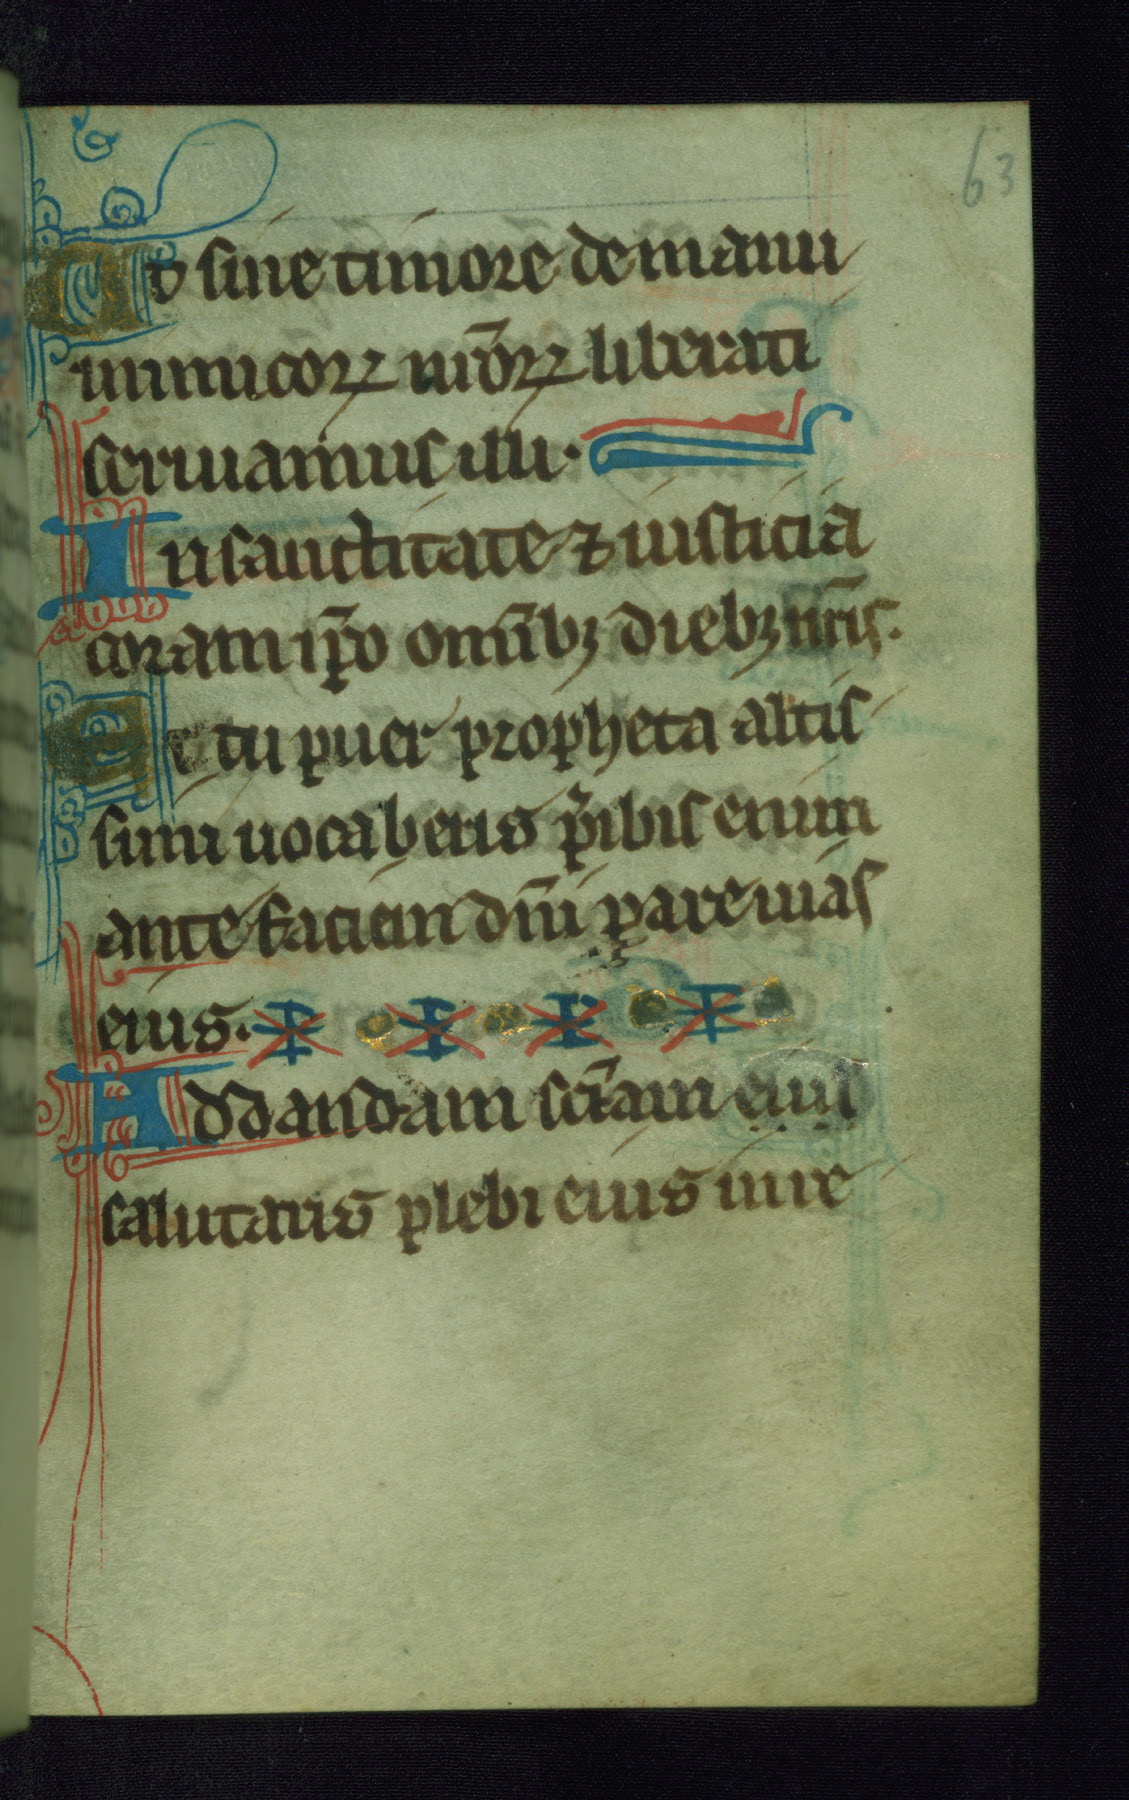 63
Ut sine timore de manu
inimicoꝝ nr̄oꝝ liberati
seruiamus illi.
In sanctitate ⁊ iusticia
coram ip̄o omĩbꝫ diebꝫ nr̄is.
Et tu puer propheta altis
simi uocaberis p̄ibis enim
ante faciem dn̄i parare uias
eius.
Ad dandam sc̄iam eius
salutaris plebi eius in re